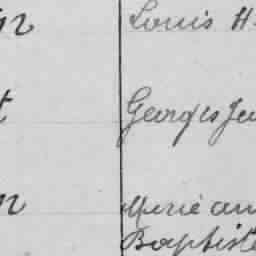 Louis H
Georges Je
Marie an
Baptiste